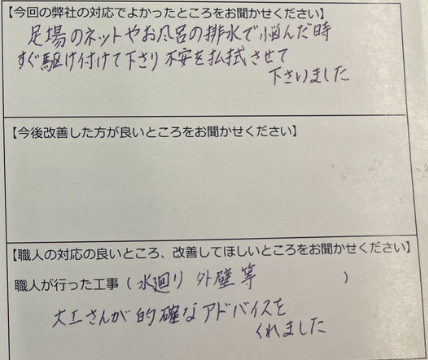 【今回の弊社の対応でよかったところをお聞かせください】
足場のネットやお風呂の排水で悩んだ時
すぐ駆け付けて下さり不安を払拭させて
下さいました
【今後改善した方が良いところをお聞かせください】
【職人の対応の良いところ、改善してほしいところをお聞かせください】
職人が行った工事（水廻り 外壁 等）
大工さんが的確なアドバイスを
くれました